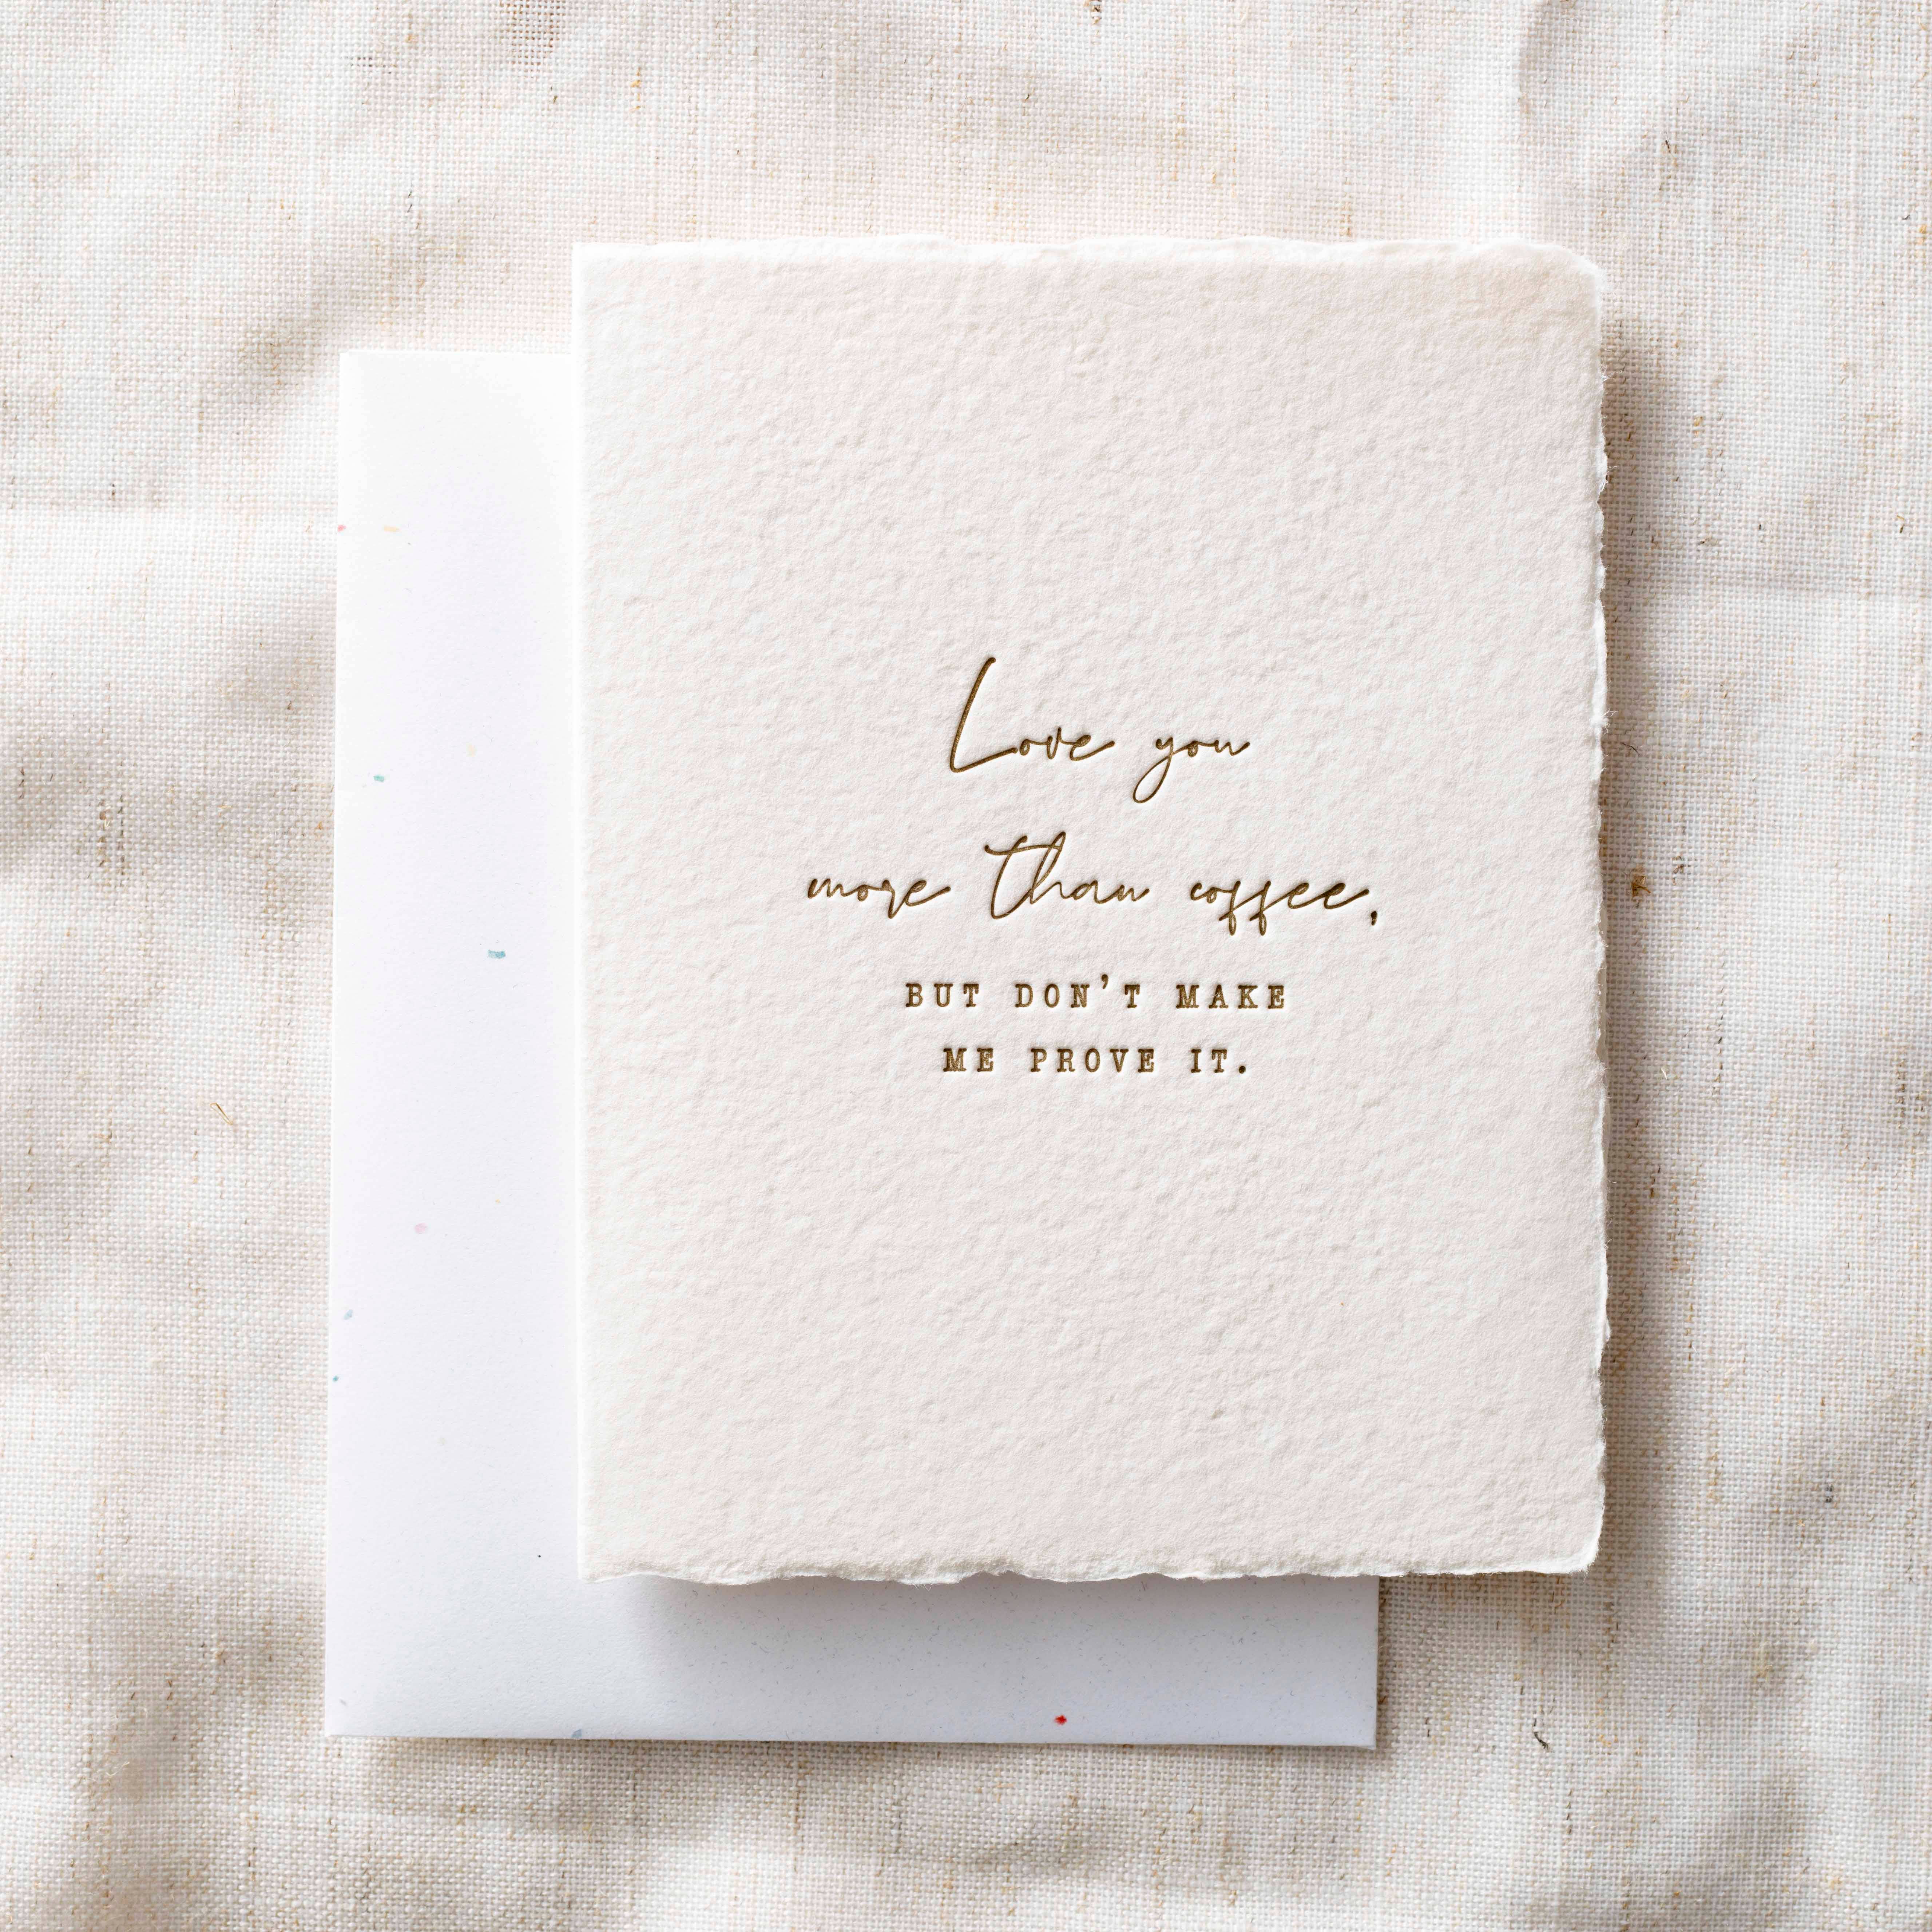 Love you
more than coffee,
BUT DON'T MAKE
ME PROVE IT.